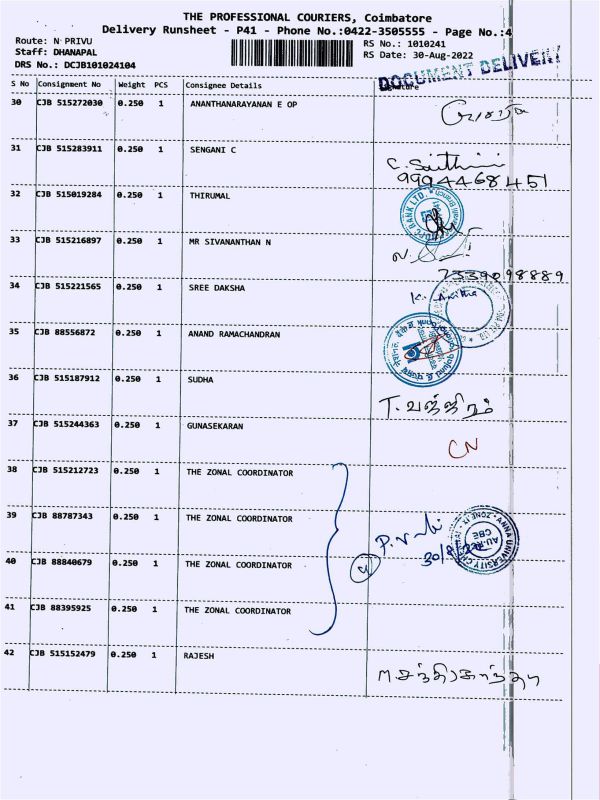 THE PROFESSIONAL COURIERS, Coimbatore
Delivery Runsheet - P41 - Phone No.:0422-3505555 - Page No.:4
Route: N PRIVU
RS No.: 1010241
Staff: DHANAPAL
RS Date: 30-Aug-2022
DRS No.: DCJB101024104
DOCUMENT DELIVERY
S No Consignment No Weight PCS Consignee Details Signature
30 CJB 515272030 0.250 1 ANANTHANARAYANAN E OP
31 CJB 515283911 0.250 1 SENGANI C
9994468451
32 CJB 515019284 0.250 1 THIRUMAL
BANK LTD.
33 CJB 515216897 0.250 1 MR SIVANANTHAN N
7339098889
34 CJB 515221565 0.250 1 SREE DAKSHA K. Anitha
35 CJB 88556872 0.250 1 ANAND RAMACHANDRAN
36 CJB 515187912 0.250 1 SUDHA
T. வஜ்ஜிரம்
37 CJB 515244363 0.250 1 GUNASEKARAN
CN
38 CJB 515212723 0.250 1 THE ZONAL COORDINATOR
39 CJB 88787343 0.250 1 THE ZONAL COORDINATOR
ANNA UNIVERSITY
CBE
30/8/22
40 CJB 88840679 0.250 1 THE ZONAL COORDINATOR 4
41 CJB 88395925 0.250 1 THE ZONAL COORDINATOR
42 CJB 515152479 0.250 1 RAJESH